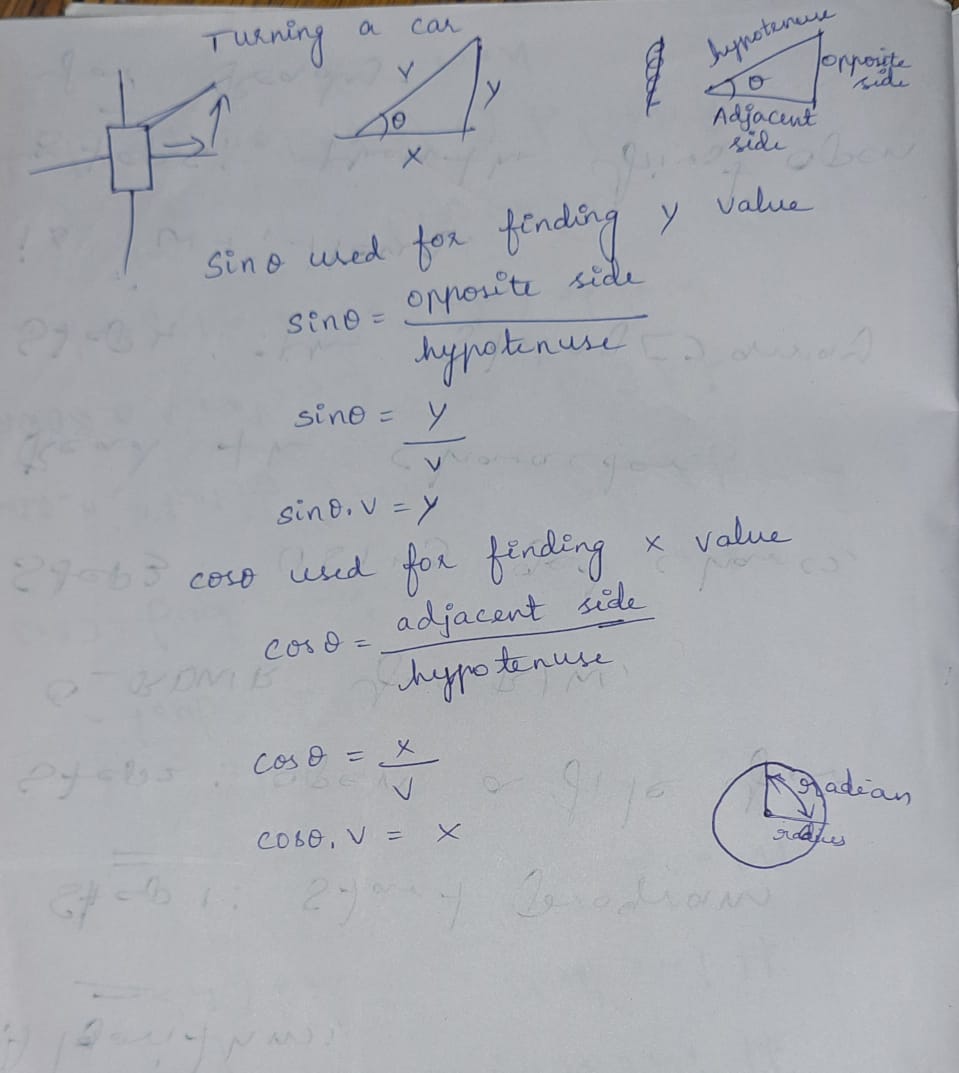 Turning a car
V
y
θ
x
hypotenuse
opposite side
θ
Adjacent side
Sinθ used for finding y value
sinθ = opposite side
hypotenuse
sinθ = y
v
sinθ. V = y
cosθ used for finding x value
cosθ = adjacent side
hypotenuse
cosθ = x
v
cosθ. V = x
radian
radius